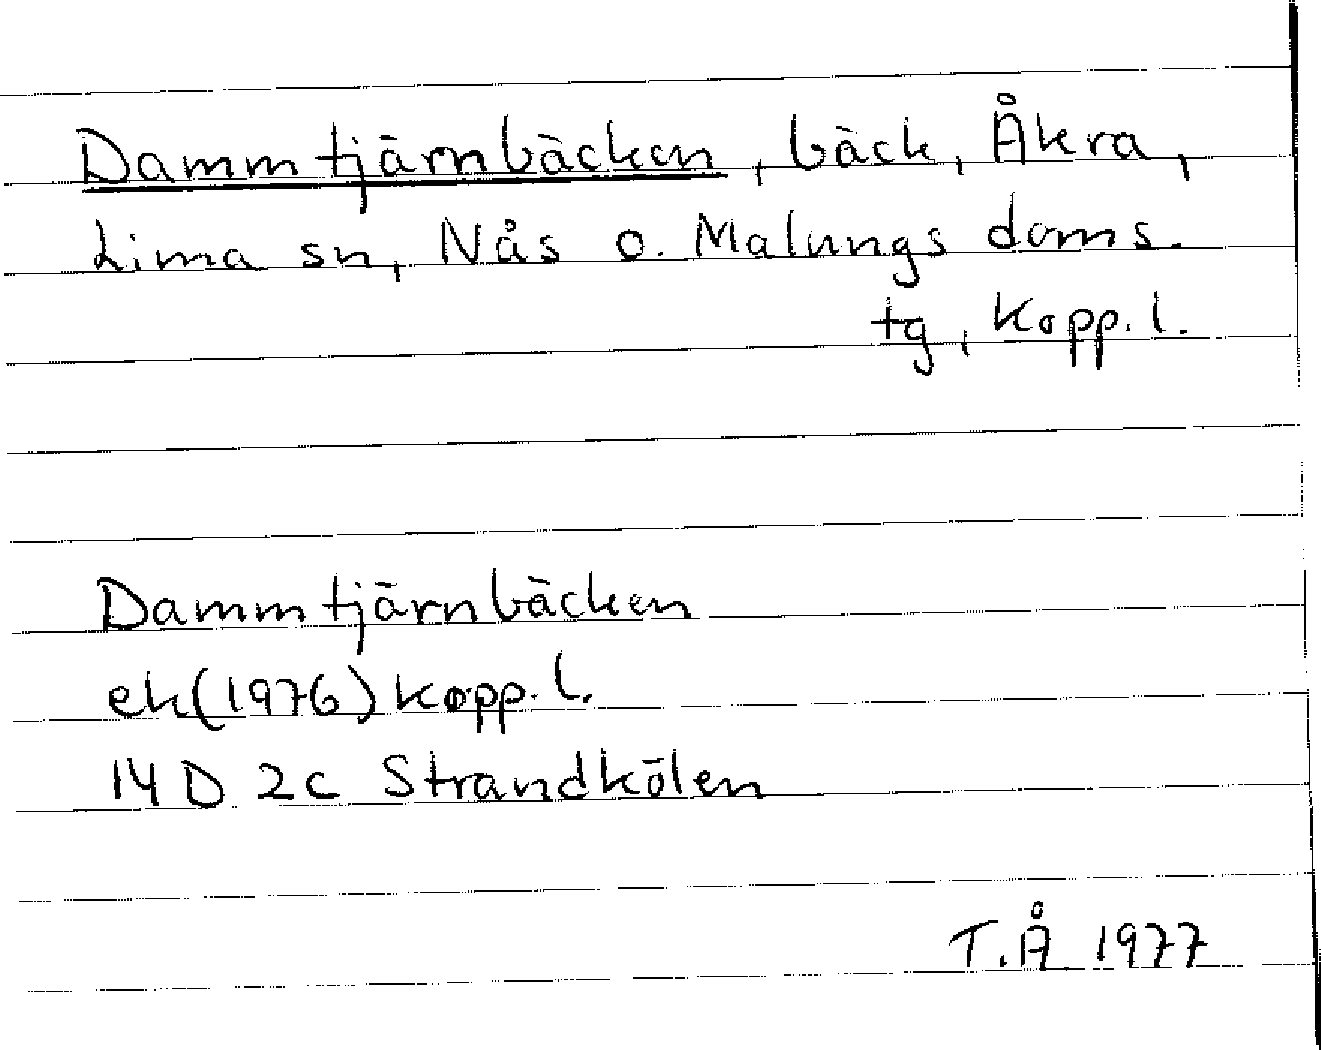 Dammtjärnbäcken, bäck, Åkra,
Lima sn, Nås o. Malungs doms.
tg, Kopp. l.
Dammtjärnbäcken
ek(1976) Kopp. l.
14 D 2c Strandkölen
T.Å 1977